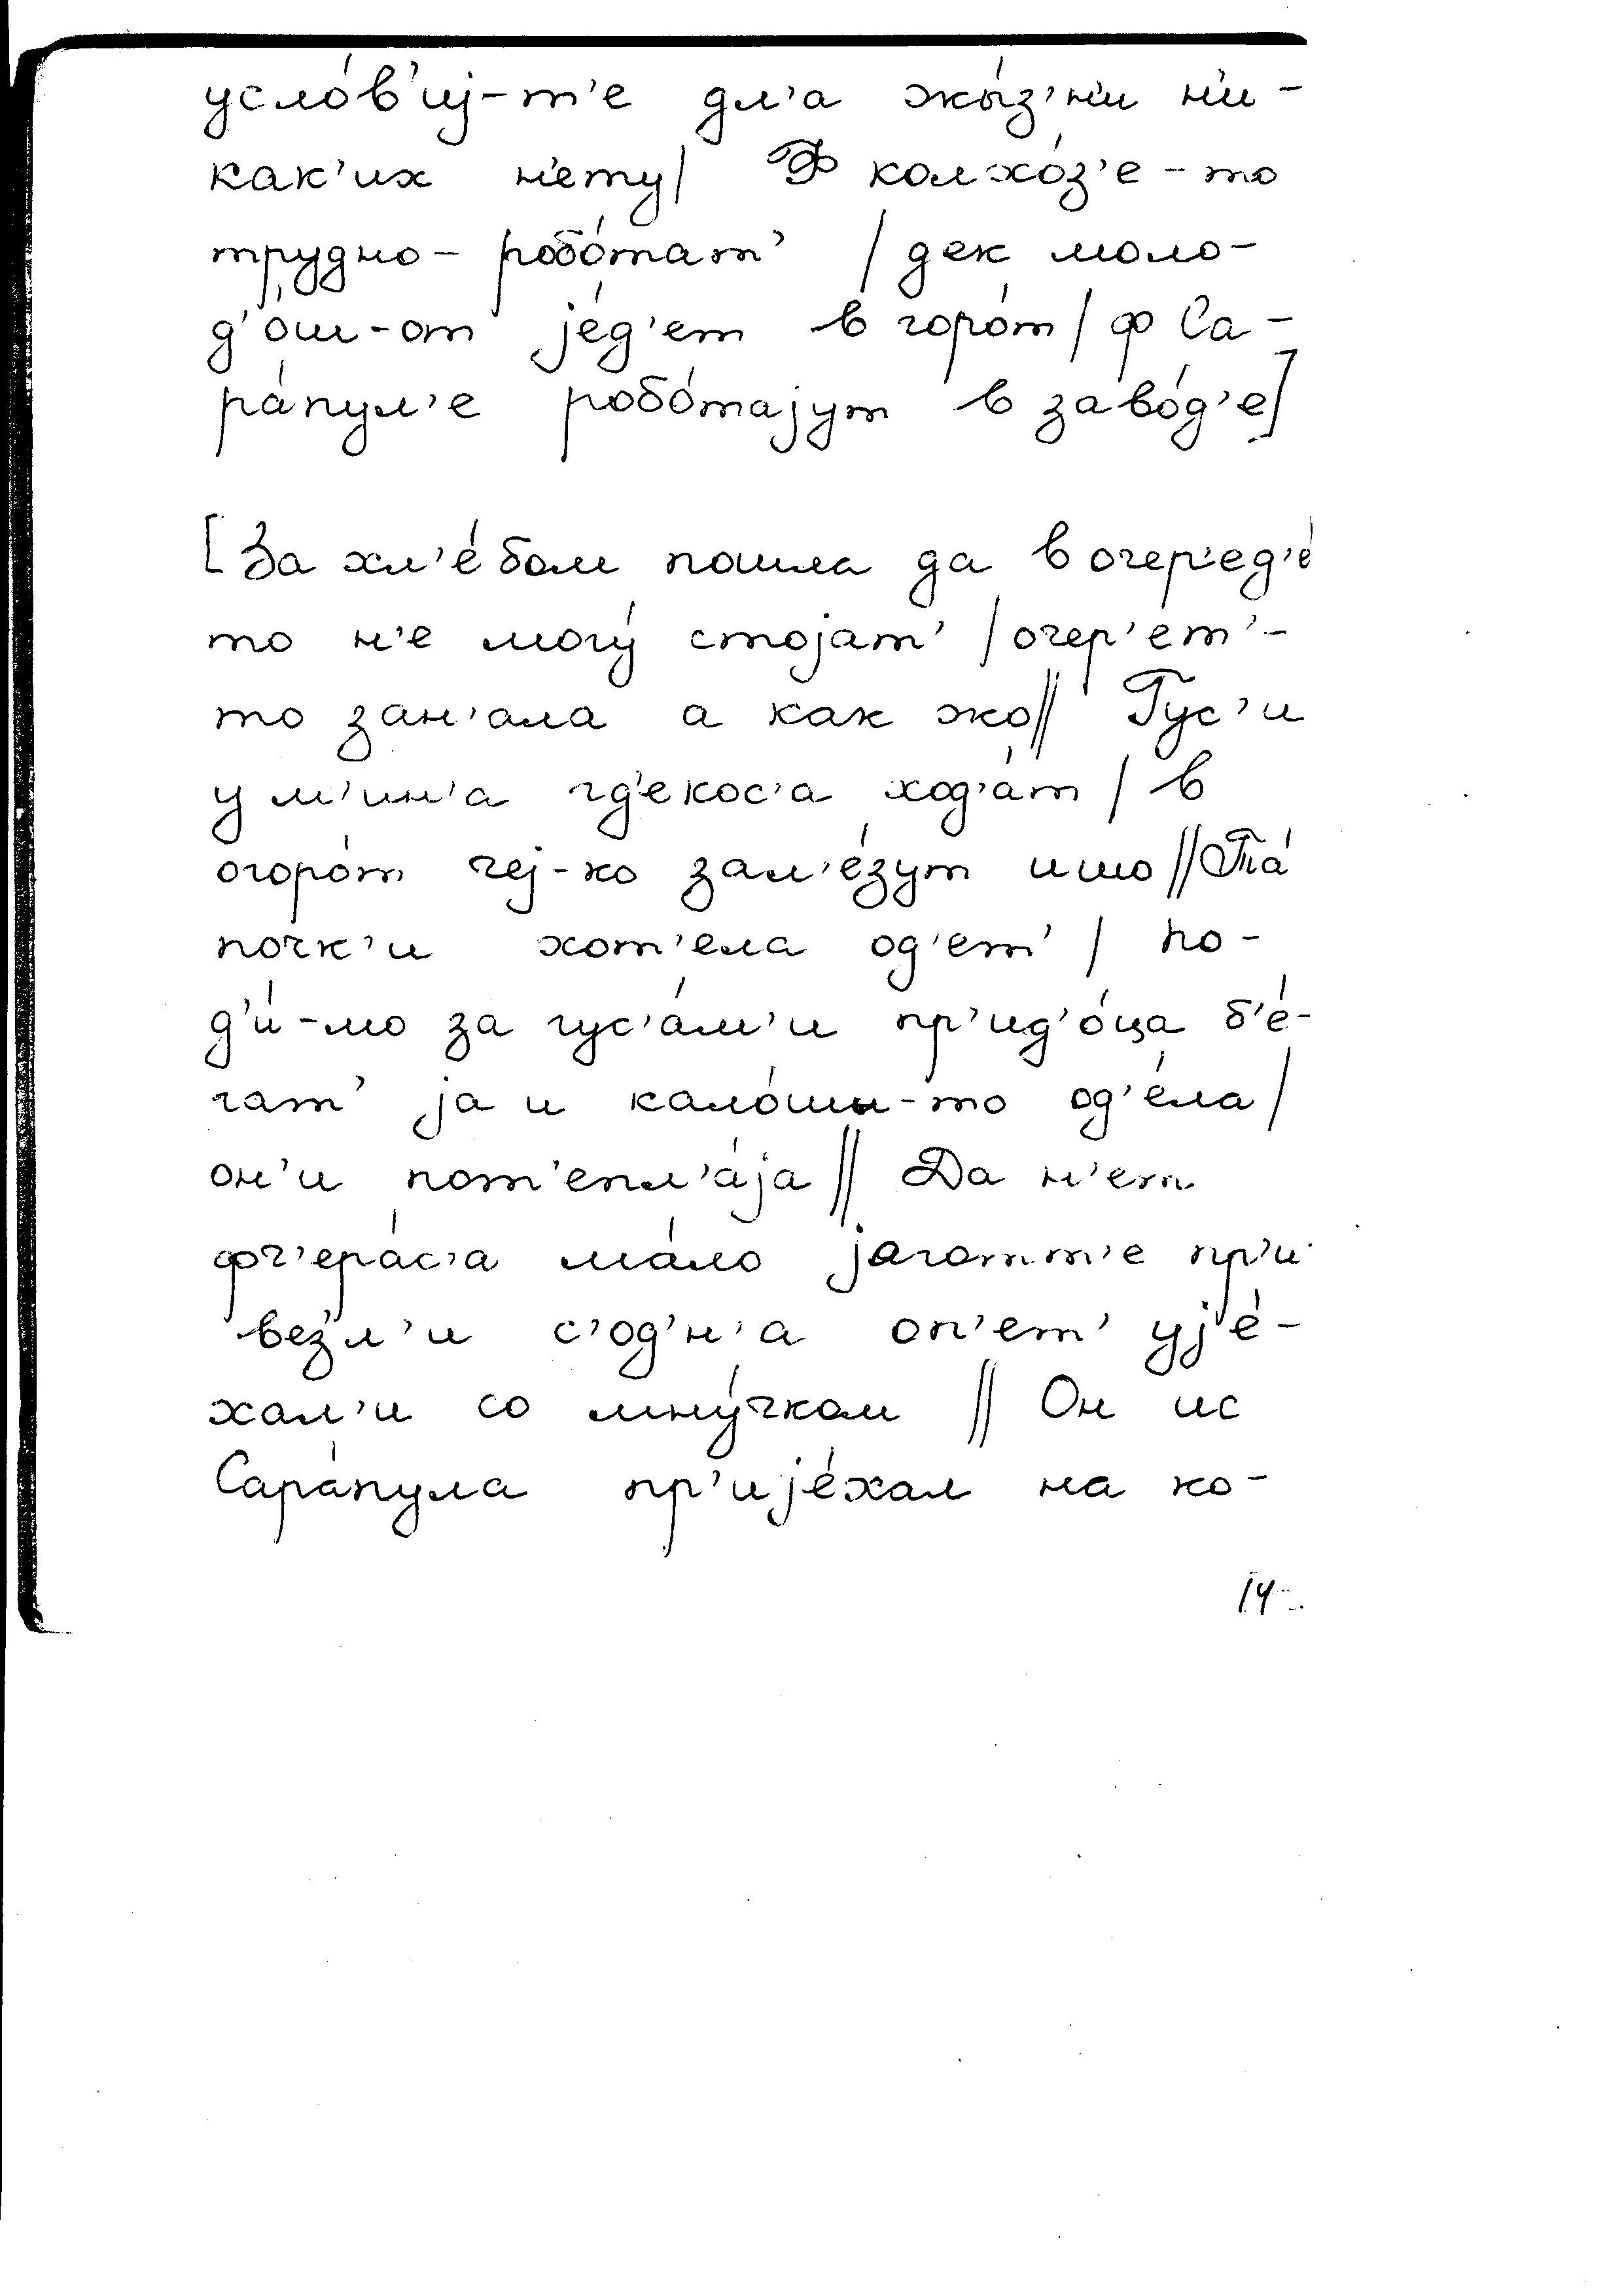 усло́в'иј-т'е дл'а жы́з'н'и н'и-
как'их н'ету/ Ф колхо́з'е-то
трудно- робо́тат' / дек моло-
д'о́ш-от је́д'ет в горо́т / ф Са-
ра́пул'е робо́тајут в заво́д'е]
[За хл'е́бом пошла да в очер'ед'е́
то н'е могу́ стојат' / очер'ет'-
то зан'ала а как жо// Гус'и
у м'ин'а гд'екос'а ход'а́т / в
огоро́т чеј-ко зал'е́зут ишо // Та́
почк'и хот'ела од'ет' / по-
д'и́-мо за гус'а́м'и пр'ид'о́ца б'е́-
гат' ја и кало́шы-то од'е́ла /
он'и пот'епл'а́ја // Да н'ет
фч'ера́с'а ма́ло јаготт'е пр'и
везл'и с'од'н'а оп'ет' ује́-
хал'и со мну́чком // Он ис
Сара́пула пр'ије́хал на ко-
14